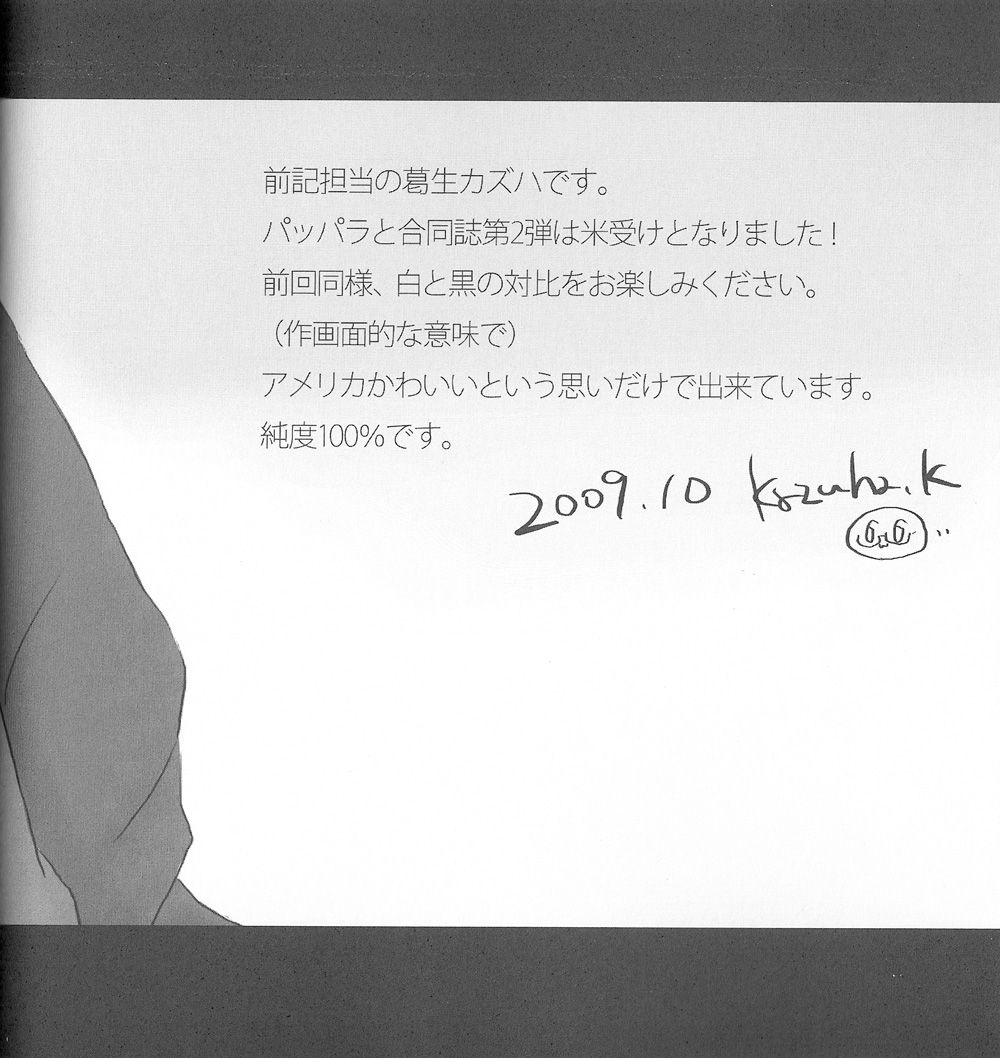 前記担当の葛生カズハです。
パッパラと合同誌第2弾は米受けとなりました！
前回同様、白と黒の対比をお楽しみください。
（作画面的な意味で）
アメリカかわいいという思いだけで出来ています。
純度100%です。
2009.10 Kazuha.K